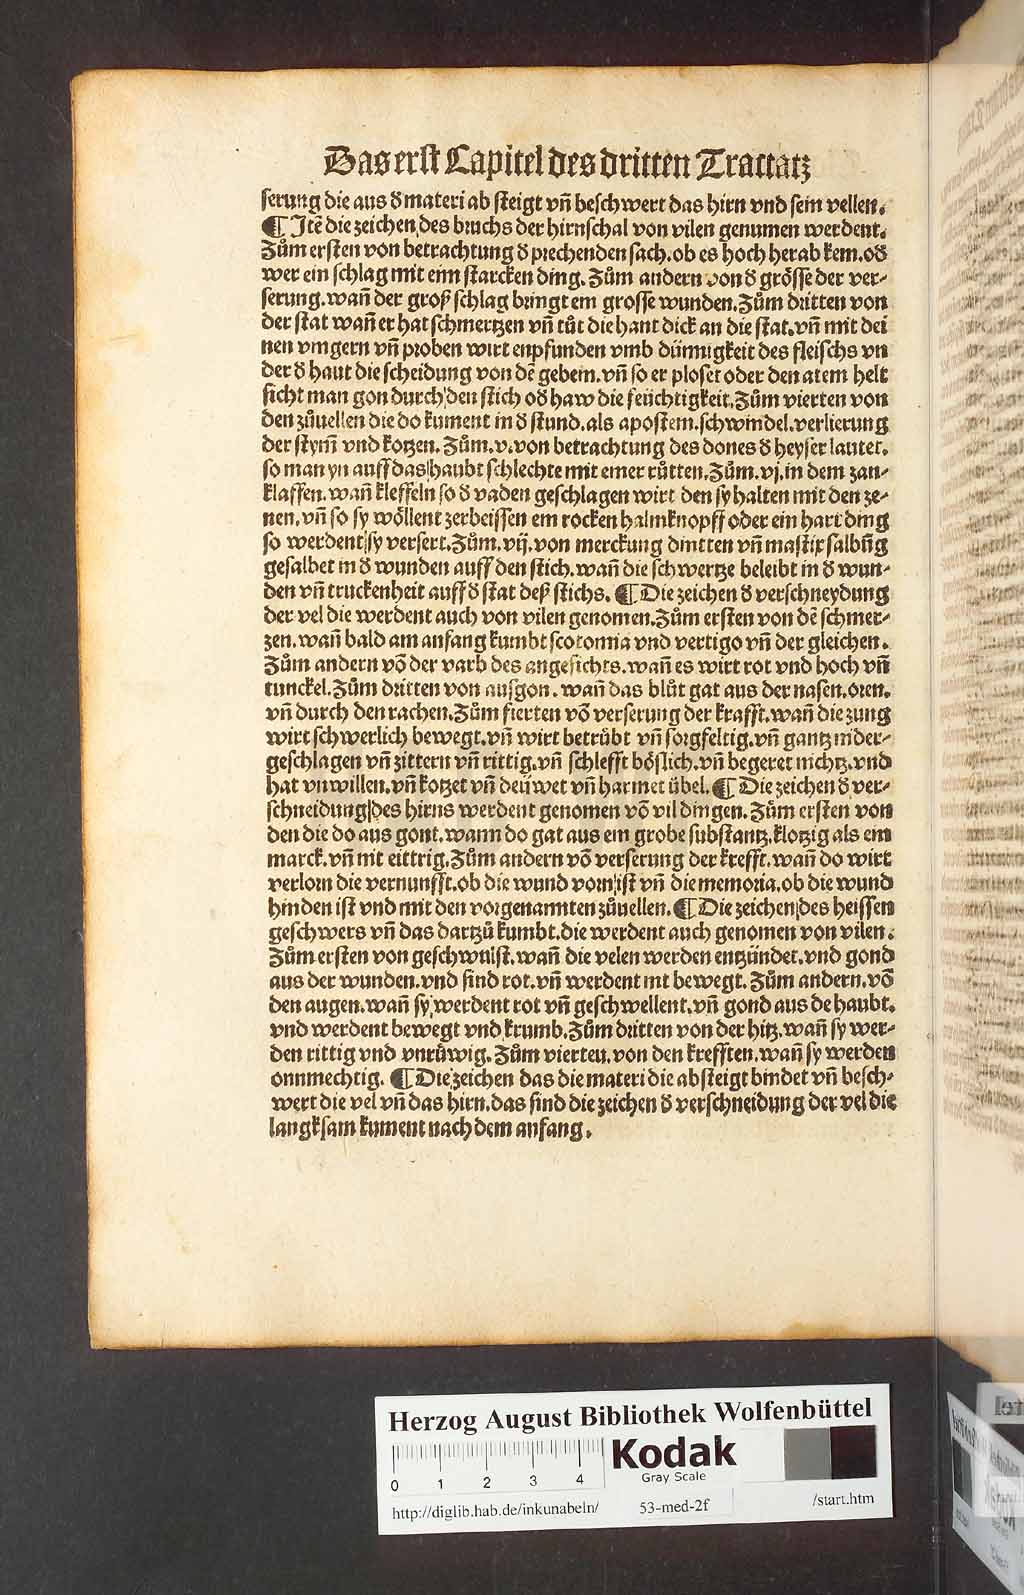 Das erst Capitel des dritten Tractatz
serung die aus d̕ materi ab steigt vn̄ beschwert das hirn vnd sein vellen.
¶ Itē die zeichen des bruchs der hirnschal von vilen genumen werdent.
Zům ersten von betrachtung d̕ prechenden sach. ob es hoch herab kem. od̕
wer ein schlag mit eim starcken ding. Zům andern von d̕ grösse der ver-
serung. wan̄ der groß schlag bringt ein grosse wunden. Zům dritten von
der stat wan̄ er hat schmertzen vn̄ tůt die hant dick an die stat. vn̄ mit dei
nen vingern vn̄ proben wirt enpfunden vmb dünnigkeit des fleischs vn
der d̕ haut die scheidung von dē gebein. vn̄ so er ploset oder den atem helt
sicht man gon durch den stich od̕ haw die feüchtigkeit. Zům vierten von
den zůuellen die do kument in d̕ stund. als apostem. schwindel. verlierung
der stym̄ vnd kotzen. Zům. v. von betrachtung des dones d̕ heyser lautet.
so man yn auff das haubt schlechte mit einer růtten. Zům. vj. in dem zan-
klaffen. wan̄ kleffeln so d̕ vaden geschlagen wirt den sy halten mit den ze-
nen. vn̄ so sy wöllent zerbeissen ein rocken halmknopff oder ein hart ding
so werdent sy versert. Zům. vij. von merckung dintten vn̄ mastix salbūg
gesalbet in d̕ wunden auff den stich. wan̄ die schwertze beleibt in d̕ wun-
den vn̄ truckenheit auff d̕ stat deß stichs. ¶ Die zeichen d̕ verschneydung
der vel die werdent auch von vilen genomen. Zům ersten von dē schmer-
zen. wan̄ bald am anfang kumbt scotomia vnd vertigo vn̄ der gleichen.
Zům andern vō der varb des angesichts. wan̄ es wirt rot vnd hoch vn̄
tunckel. Zům dritten von ausgon. wan̄ das blůt gat aus der nasen. oren.
vn̄ durch den rachen. Zům fierten vō verserung der krafft. wan̄ die zung
wirt schwerlich bewegt. vn̄ wirt betrübt vn̄ sorgfeltig. vn̄ gantz nider-
geschlagen vn̄ zittern vn̄ rittig. vn̄ schlefft böslich. vn̄ begeret nichtz. vnd
hat vnwillen. vn̄ kotzet vn̄ deüwet vn̄ harnet übel. ¶ Die zeichen d̕ ver-
schneidung des hirns werdent genomen vō vil dingen. Zům ersten von
den die do aus gont. wann do gat aus ein grobe substantz, klotzig als ein
marck. vn̄ nit eittrig. Zům andern vō verserung der krefft. wan̄ do wirt
verlorn die vernunfft. ob die wund vorn ist vn̄ die memoria. ob die wund
hinden ist vnd mit den vorgenannten zůuellen. ¶ Die zeichen des heissen
geschwers vn̄ das dartzů kumbt. die werdent auch genomen von vilen.
Zům ersten von geschwulst. wan̄ die velen werden entzündet. vnd gond
aus der wunden. vnd sind rot. vn̄ werdent nit bewegt. Zům andern. vō
den augen. wan̄ sy werdent rot vn̄ geschwellent. vn̄ gond aus de haubt.
vnd werdent bewegt vnd krumb. Zům dritten von der hitz. wan̄ sy wer-
den rittig vnd vnrüwig. Zům vierten. von den krefften. wan̄ sy werden
onnmechtig. ¶ Die zeichen das die materi die absteigt bindet vn̄ besch-
wert die vel vn̄ das hirn. das sind die zeichen d̕ verschneidung der vel die
langksam kument nach dem anfang.
Herzog August Bibliothek Wolfenbüttel
Kodak
Gray Scale
0 1 2 3 4
http://diglib.hab.de/inkunabeln/ 53-med-2f /start.htm